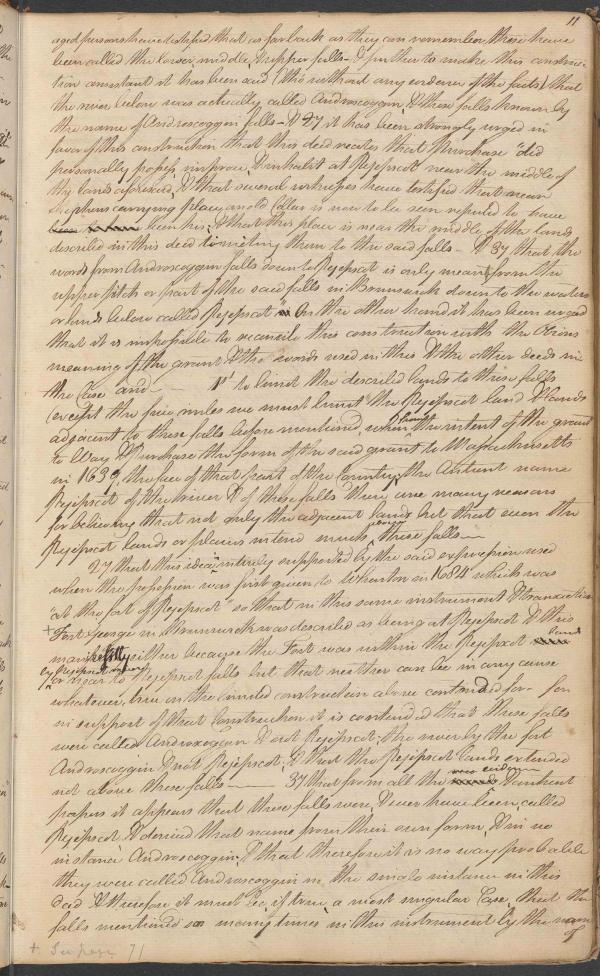 11
aged persons have testified that as far back as they can remember, these have
been called the lower, middle, & upper falls - & further to make this construc-
tion consistant it has been said (tho without any evidence of the facts) that
the river below was actually called Androscoggin, & these falls known by
the name of Androscoggin falls - & 2y it has been strongly urged in
favor of this construction that this deed recites that Purchase "did
personally possess, improve, & inhabit at Pejepscot near the middle of
the lands aforesaid, & that several witnesses have testified that near
Stephens carrying place, an old Cellar is now to be seen reputed to have
been his; & that this place is near the middle of the lands
described in this deed limiting them to the said falls - & 3y that the
words from Androscoggin falls down to Pejepscot is only meant from the
upper pitch or part of the said falls in Brunswick down to the waters
or lands below called Pejepscot On the other hand it has been urged
that it is impossible to reconcile this construction with the Obvious
meaning of the grant & the words used in this & the other deeds in
the Case and - 1st to limit the described lands to these falls
(except the five miles we must limit the Pejepscot land & lands
adjacent to these falls before mentioned, when the intent of the grant
to Way & Purchase the form of the said grant to Massachusetts
in 1639, the face of that part of the Country, the antient name
Pejepscot of the river & of these falls there, are many reasons
for believing that not only the adjacent lands but that even the
Pejepscot lands or places extend much beyond these falls -
2y that this idea is entirely supported by the said expression used
when the possession was first given to Wharton in 1684 which was
"at the fort of Pejepscot" so that in this same instrument & transaction
+ Fort George in Brunswick was described as being at Pejepscot & this
manifestly either because the Fort was within the Pejepscot lands
by Pejepscot
or near to Pejepscot falls but that neither can be in any cause
whatever, true on the limited construction above contended for - for
in support of that Construction it is contended that these falls
were called Androscoggin & not Pejepscot; the river by the fort
Androscoggin & not Pejepscot, & that the Pejepscot lands extended
not above these falls - 3y that from all the & antient
papers it appears that these falls were, & ever have been, called
Pejepscot & derived that name from their own form, & in no
instance Androscoggin, & that therefore it is no way probable
they were called Androscoggin in the single instance in this
deed & therefore it must be, if true, a most singular Case, that the
falls mentioned so many times in this instrument by the name
of
+ See page 71